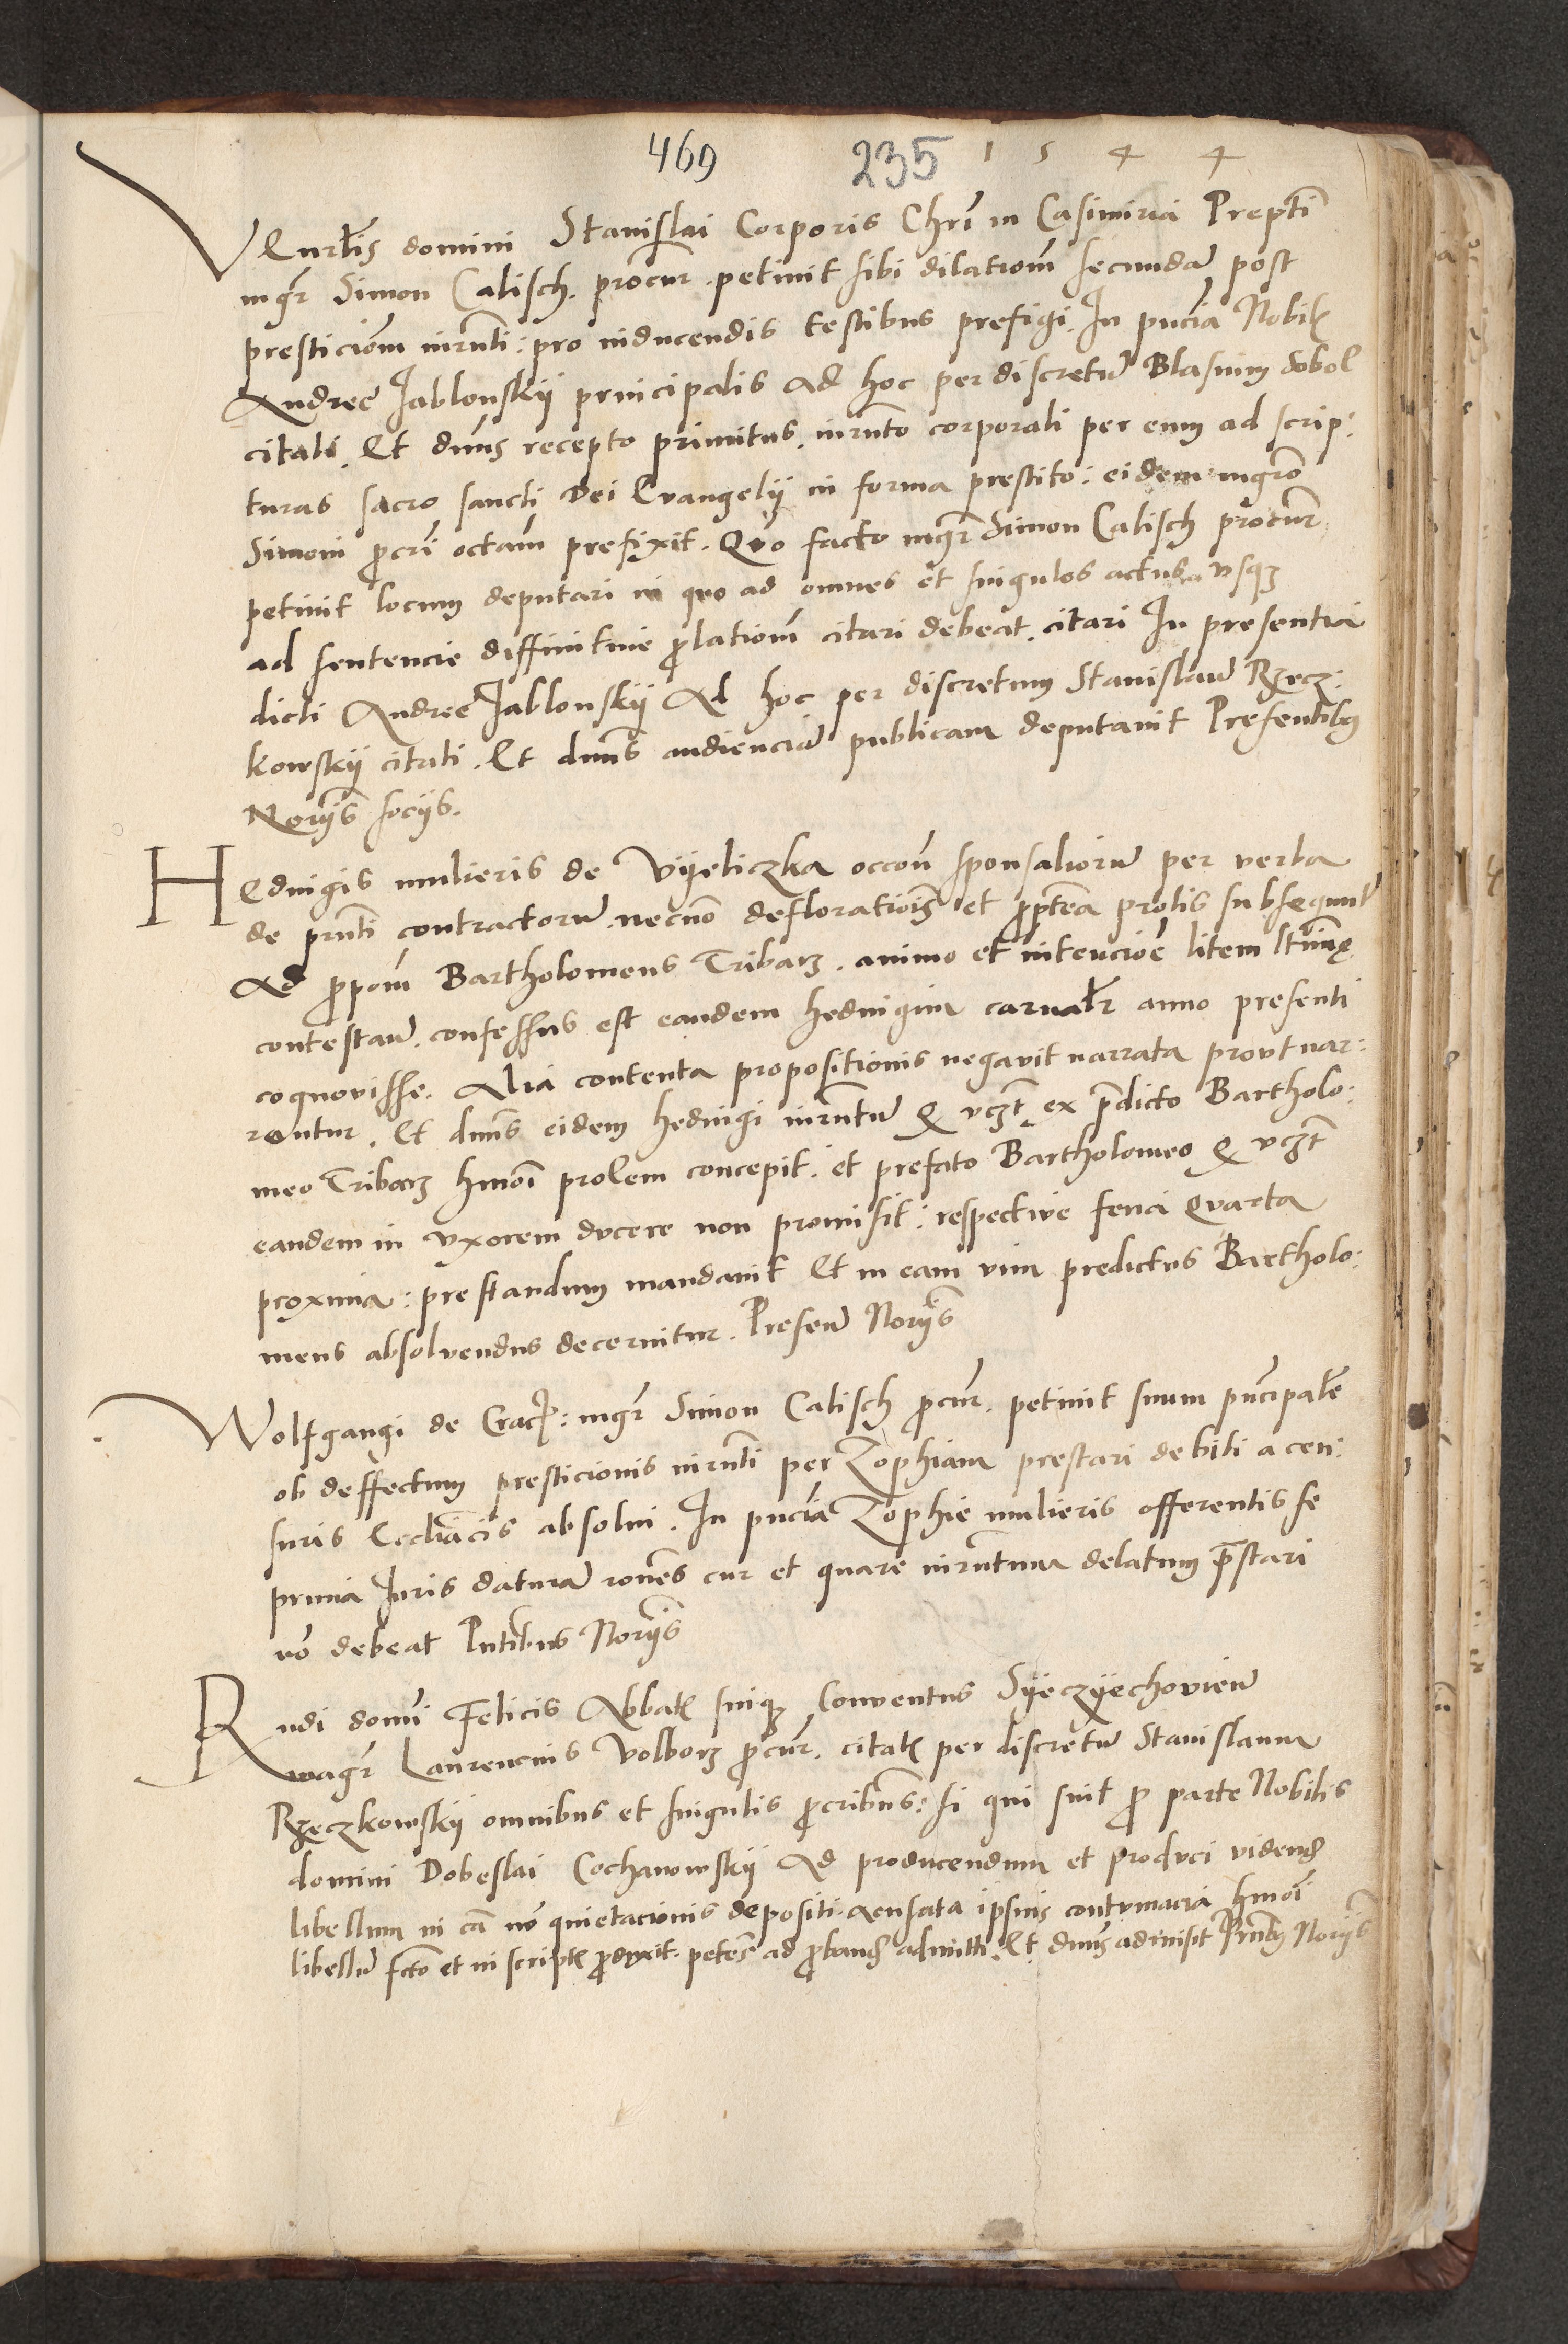 469 235 1 5 4 4
Venerlis domini Stanislai Corporis Chri in Casimiria Prepti
mgr Simon Calisch. procur. petivit sibi dilationem secundam post
presticiom iurnti: pro inducendis testibus prefigi. In pncia Nobil
Andree Jablonskij principalis Ad hoc per discretu Blasium Sobol
citati. Et dnus recepto primitus. iurnto corporali per eum ad scrip:
turas sacro sancti Dei Evangelij in forma prestito: eidem mgro
Simoni procri octam prefixit. Quo facto mgr Simon Calisch procur
petivit locum deputari in quo ad omnes et singulos actus usqz
ad sentencie diffinitive prolationem citari debeat. citari In presentia
dicti Andree Jablonskij Ad hoc per discretum Stanislau Rzecz:
kowskij citati. Et dnus audienciam publicam deputavit Presentibus
Norijs socijs.
Hedvigis mulieris de Vyeliczka occon sponsaliorum per verba
de prnti contractorum. necno deflorationis et propterea prolis subsequut
Ad propom Bartholomeus Tribarz. animo et intencioe litem
contestan. confessus est eandem hedvigim carnalr anno presenti
cognovisse. Alia contenta propositionis negavit narrata prout nar:
rantur. Et dnus eidem hedvigi iurntum q vczt ex predicto Bartholo:
meo Tribarz hmoi prolem concepit. et prefato Bartholomeo q vczt
eandem in uxorem ducere non promisit: respective feria Quarta
proxima: prestandum mandavit Et in eam vim predictus Bartholo:
meus absolvendus decernitur. Presen Norijs
Wolfgangi de Crac: mgr Simon Calisch procur. petivit suum pncipale
ob deffectum presticionis iurnti per Zophiam prestari debiti a cen:
suris Eccliacis absolvi. In pncia Zophie mulieris offerentis se
prima Iuris daturam rones cur et quare iurntum delatum prestari
no debeat Pntibus Norijs
Rndi domi Felicis Abbat suiqz Conventus Syeczyechovien
magr Laurencius Volborz procur. citat per discretum Stanislaum
Rzeczkowskij omnibus et singulis procribus: si qui sint pro parte Nobilis
domini Dobeslai Cochanowskij Ad producendum et produci vidend
libellum in ca no quietacionis depositi. accusata ipsius contumacia hmoi
libellum fcto et in script produxit. petens ad proband admitti. Et dnus admisit Prntibus Norijs